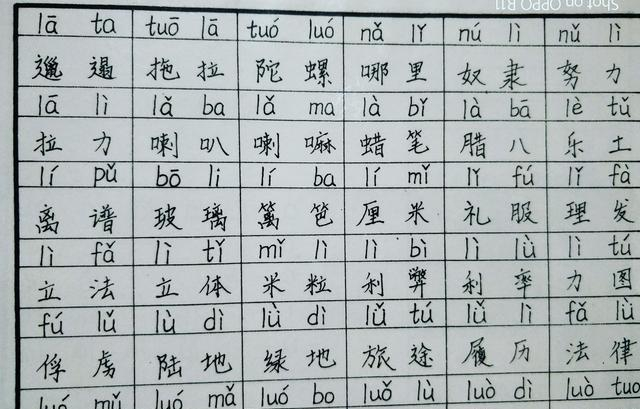 Shot on OPPO R11
lā ta tuō lā tuó luó nǎ lǐ nú lì nǔ lì
邋遢 拖拉 陀螺 哪里 奴隶 努力
lā lì lǎ ba lǎ ma là bǐ là bā lè tǔ
拉力 喇叭 喇嘛 蜡笔 腊八 乐土
lí pǔ bō li lí ba lí mǐ lǐ fú lǐ fà
离谱 玻璃 篱笆 厘米 礼服 理发
lì fǎ lì tǐ mǐ lì lì bì lì lǜ lì tú
立法 立体 米粒 利弊 利率 力图
fú lǔ lù dì lǜ dì lǚ tú lǚ lì fǎ lǜ
俘虏 陆地 绿地 旅途 履历 法律
luó mǔ luó mǎ luó bo luǒ lù luò dì luò tuo